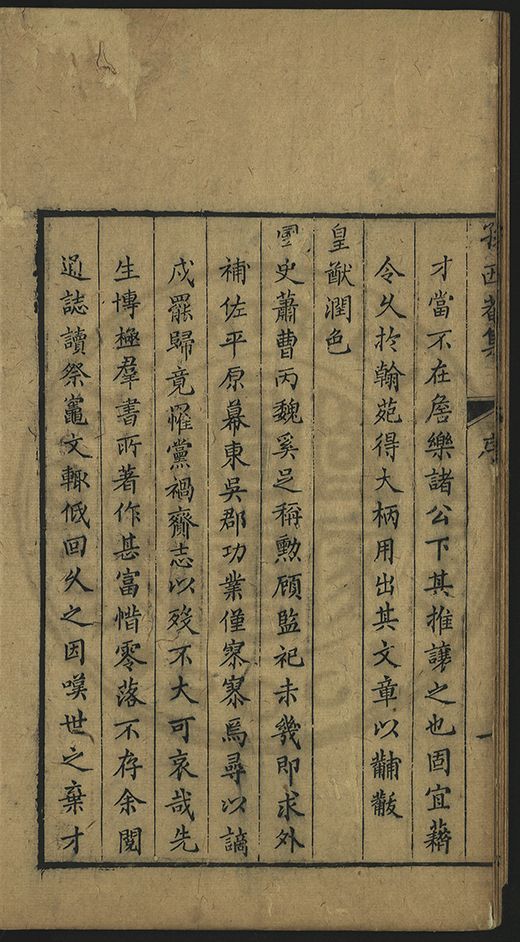 孫西菴集 序 一
才當不在詹樂諸公下其推讓之也固宜藉
令久於翰苑得大柄用出其文章以黼黻
皇猷潤色
國史蕭曹丙魏奚足稱勲顧監祀未幾即求外
補佐平原幕東吳郡功業僅寥寥焉尋以謫
戍罷歸竟罹黨禍齎志以歿不大可哀哉先
生博極羣書所著作甚富惜零落不存余閱
通誌讀祭竈文輙低回久之因嘆世之棄才